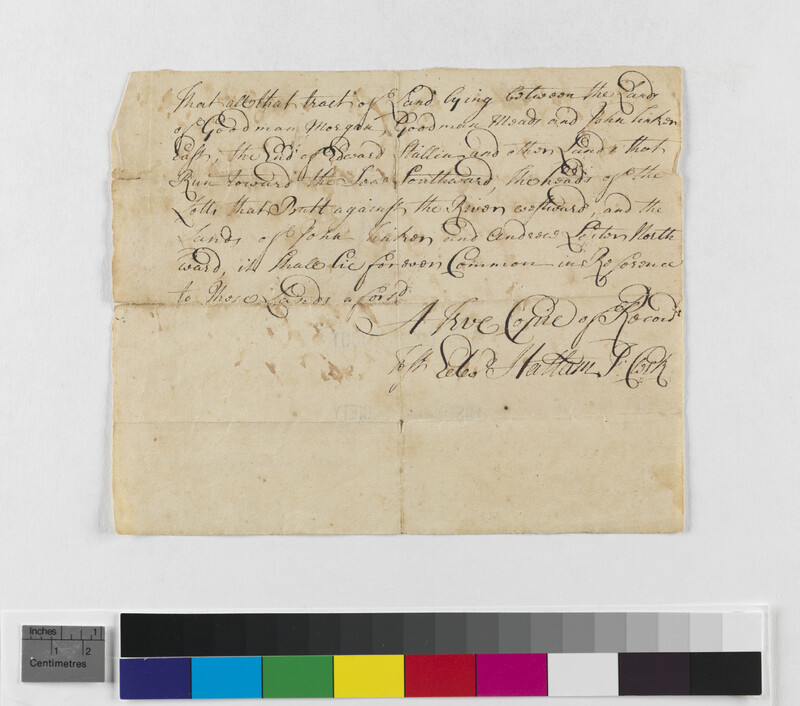 That all that tract of Land lying between the Lands
of Goodman Morgan, Goodman Meads and John
East, the Land of Edward Stallin and other Lands that
Run toward the Southward, the heads of the
Lotts that Butt against the River westward, and the
Lands of John and Andrew Lester North
ward, it Shall lie forever Common in Reference
to those Lands afores.d
A True Copie of Record
Test Edw.d Hallam T: Clerk
Inches 1
1 2
Centimetres